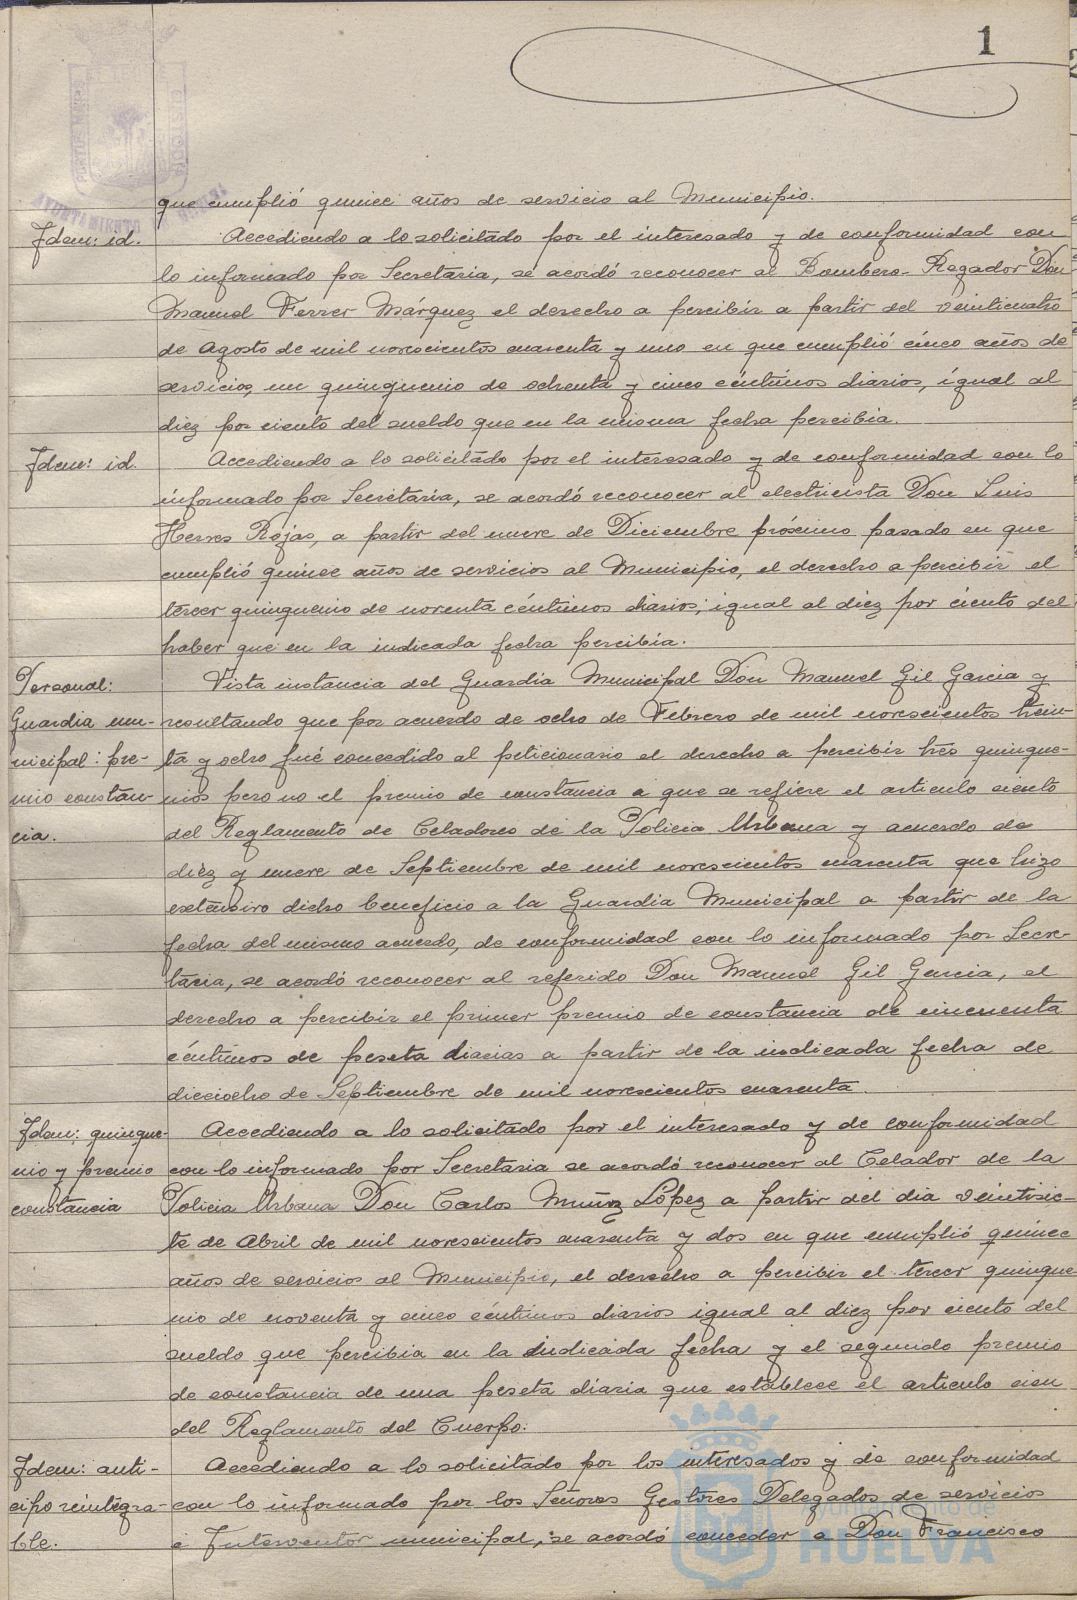 1
que cumplió quince años de servicio al Municipio.
Idem: id.
Accediendo a lo solicitado por el interesado y de conformidad con
lo informado por Secretaria, se acordó reconocer al Bombero-Regador Don
Manuel Ferrer Márquez el derecho a percibir a partir del veinticuatro
de Agosto de mil novecientos cuarenta y uno en que cumplió cinco años de
servicios, un quinquenio de ochenta y cinco céntimos diarios, igual al
diez por ciento del sueldo que en la misma fecha percibia.
Idem: id.
Accediendo a lo solicitado por el interesado y de conformidad con lo
informado por Secretaria, se acordó reconocer al electricista Don Luis
Herves Rojas, a partir del nueve de Diciembre próximo pasado en que
cumplió quince años de servicios al Municipio, el derecho a percibir el
tercer quinquenio de noventa céntimos diarios; igual al diez por ciento del
haber que en la indicada fecha percibia.
Personal:
Guardia mu-
nicipal: pre-
mio constan-
cia.
Vista instancia del Guardia Municipal Don Manuel Gil Garcia y
resultando que por acuerdo de ocho de Febrero de mil novecientos trein-
ta y ocho fué concedido al peticionario el derecho a percibir tres quinque-
nios pero no el premio de constancia a que se refiere el articulo ciento
del Reglamento de Celadores de la Policia Urbana y acuerdo de
diez y nueve de Septiembre de mil novecientos cuarenta que hizo
extensivo dicho beneficio a la Guardia Municipal a partir de la
fecha del mismo acuerdo, de conformidad con lo informado por Secre-
taria, se acordó reconocer al referido Don Manuel Gil Garcia, el
derecho a percibir el primer premio de constancia de cincuenta
céntimos de peseta diarias a partir de la indicada fecha de
dieciocho de Septiembre de mil novecientos cuarenta.
Idem: quinque-
nio y premio
constancia
Accediendo a lo solicitado por el interesado y de conformidad
con lo informado por Secretaria se acordó reconocer al Celador de la
Policia Urbana Don Carlos Muñoz López a partir del dia veintisie-
te de Abril de mil novecientos cuarenta y dos en que cumplió quince
años de servicios al Municipio, el derecho a percibir el tercer quinque
nio de noventa y cinco céntimos diarios igual al diez por ciento del
sueldo que percibia en la indicada fecha y el segundo premio
de constancia de una peseta diaria que establece el articulo cien
del Reglamento del Cuerpo.
Idem: anti-
cipo reintegra-
ble.
Accediendo a lo solicitado por los interesados y de conformidad
con lo informado por los Señores Gestores Delegados de servicios
e Interventor municipal, se acordó conceder a Don Francisco
Ayuntamiento de
HUELVA